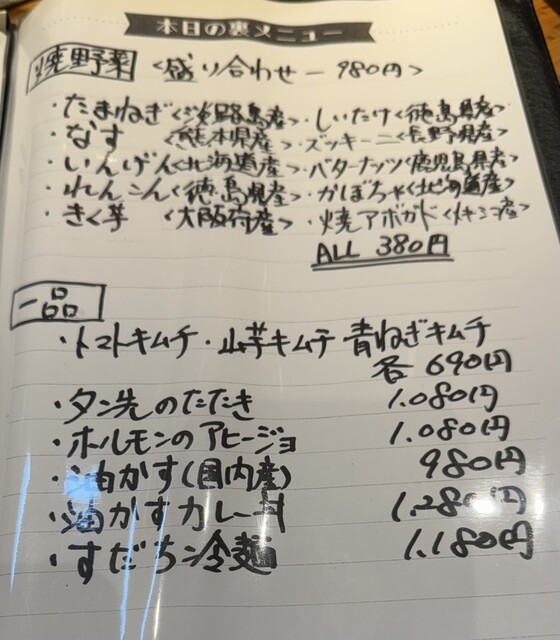 本日の裏メニュー
焼野菜 <盛り合わせー980円>
・たまねぎ<淡路島産> ・しいたけ<徳島県産>
・なす <熊本県産> ・ズッキーニ<長野県産>
・いんげん<北海道産> ・バターナッツ<鹿児島県産>
・れんこん<徳島県産> ・かぼちゃ<北海道産>
・きく芋 <大阪府産> ・焼アボガド<メキシコ産>
ALL 380円
一品
・トマトキムチ・山芋キムチ 青ねぎキムチ
各 690円
・タン先のたたき 1.080円
・ホルモンのアヒージョ 1.080円
・油かす(国内産) 980円
・油かすカレー丼 1.280円
・すだち冷麺 1.180円